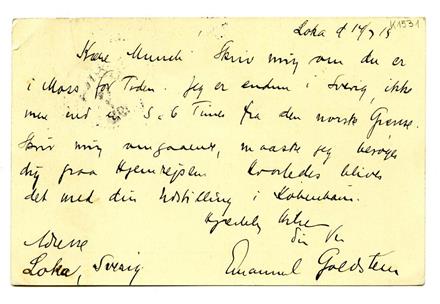 K1531
Loka d 14/7 15
Kære Munch! Skriv mig om du er
i Moss for Tiden. Jeg er endnu i Sverig, ikke
mere end c 5-6 Timer fra den norske Grænse.
Skriv mig omgaaende, maaske jeg besøger
dig paa Hjemrejsen. Hvorledes bliver
det med din Udstilling i København.
Hjertelig Hilsen
din Ven
Emanuel Goldstein
Adresse
Loka, Sverig